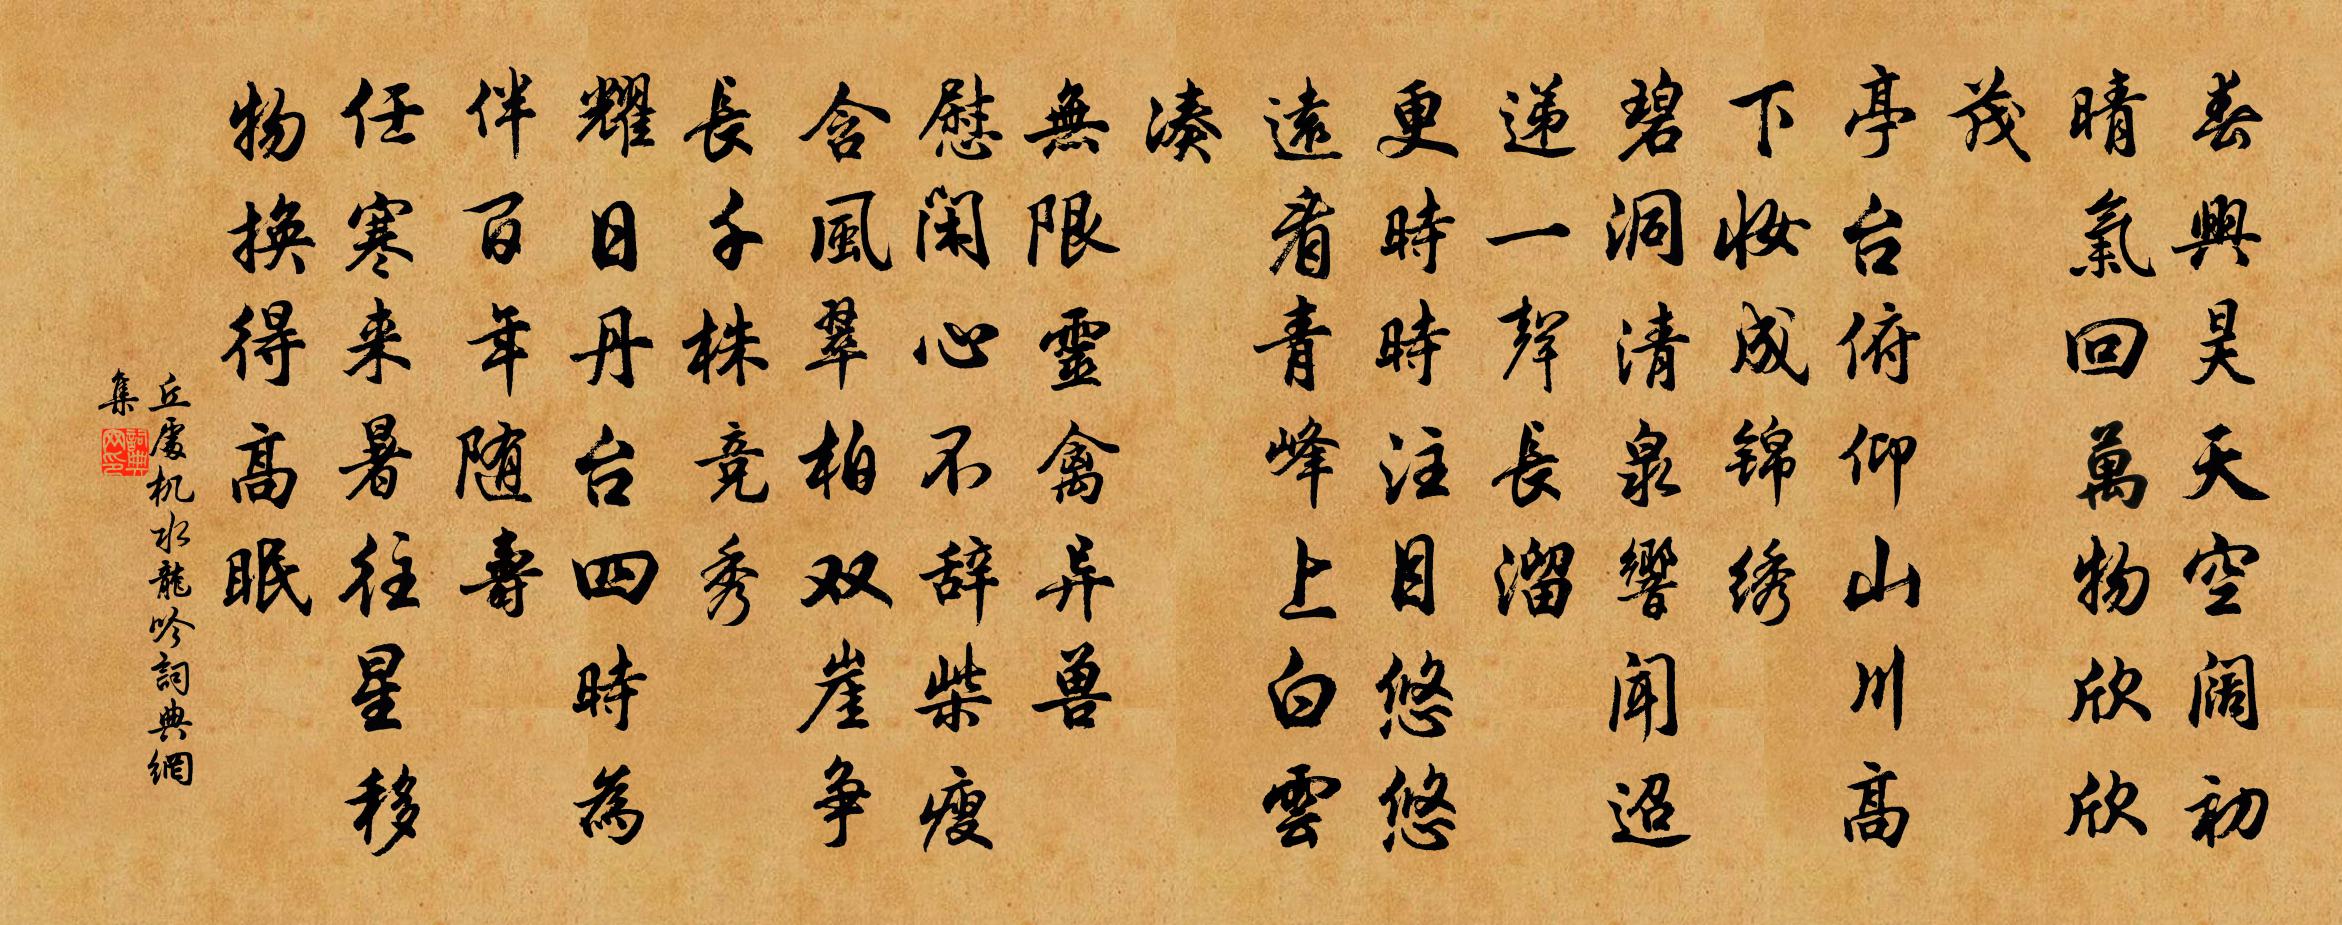 春興昊天空阔初
晴氣回萬物欣欣
茂
亭台俯仰山川高
下妝成锦绣
碧洞清泉響闻迢
递一聲長溜
更時時注目悠悠
遠看青峰上白雲
湊
無限靈禽异兽
慰闲心不辞柴瘦
含風翠柏双崖争
長千株竞秀
耀日丹台四時為
伴百年随壽
任寒来暑往星移
物换得高眠
丘處机水龍吟詞典網
集
詞典
网印